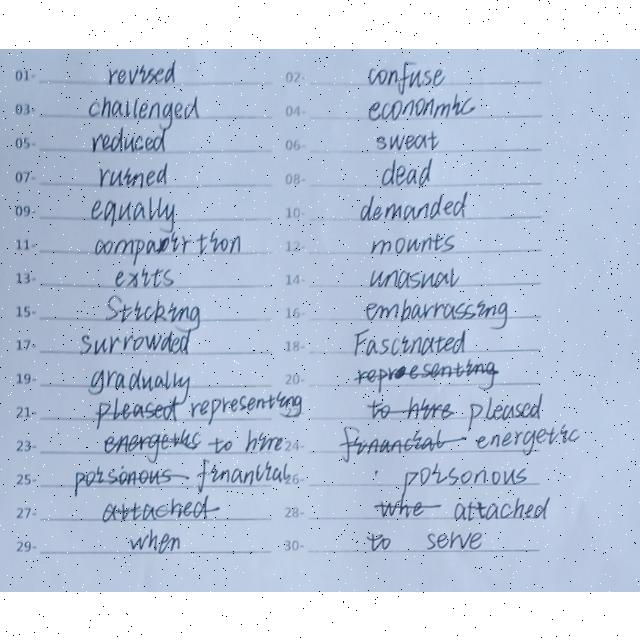 01- revised 02- confuse
03- challenged 04- econonmic
05- reduced 06- sweat
07- ruined 08- dead
09- equally 10- demanded
11- 12- mounts
13- exits 14- unasual
15- Sticking 16- embarrassing
17- surrowded 18- Fascinated
19- gradually 20- representing
21- pleased representing to hire pleased
23- energetic to hire 24- financial energetic
25- poisonous financial 26- poisonous
27- attached 28- whe attached
29- when 30- to serve